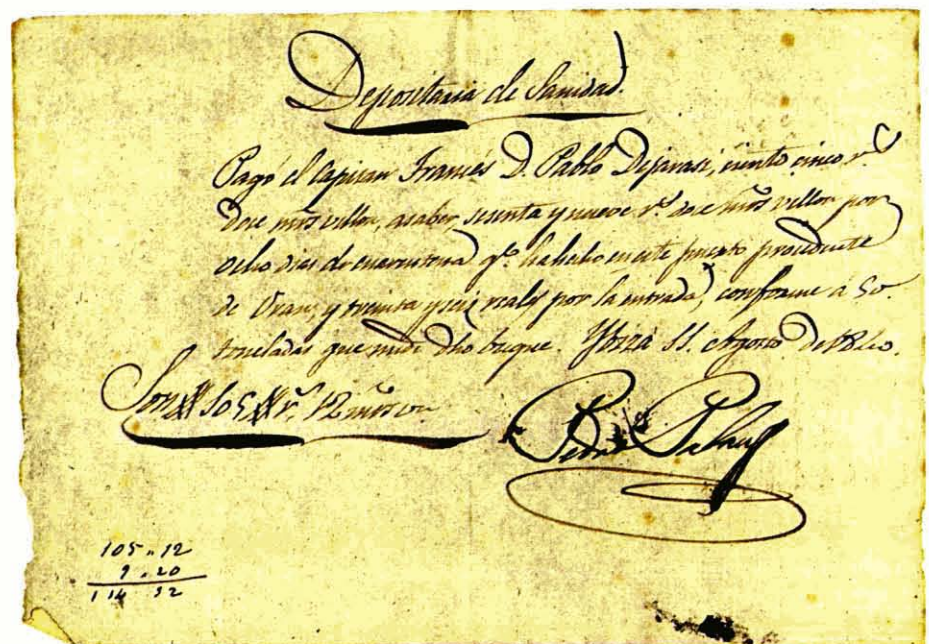 Depositaria de Sanidad.
Pagó el Capitan Francés D. Pablo Dejarasi, ciento cinco r.s
doce mrs vellon, asaber, sesenta y nueve r.s doce mrs vellon por
ocho dias de cuarentena q.e ha hecho en este puerto procedente
de Oran, y treinta y seis reales por la entrada, conforme á 50
toneladas que mide dho buque. Ybiza 11. Agosto de 1840.
Son 105 r.s 12 mrs von
Pedro
105 " 12
9 " 20
114 32